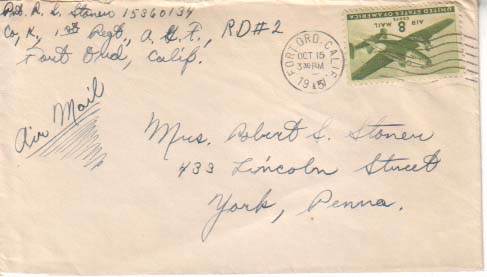 Pvt. R. S. Stoner 15360134
Co, K, 1st Regt, A. G. F., RD#2
Fort Ord, Calif.
Air Mail
FORT ORD, CALIF.
OCT 15
3 PM
1945
UNITED STATES OF AMERICA
AIR MAIL
8 CENTS 8
Mrs. Robert S. Stoner
433 Lincoln Street
York, Penna.